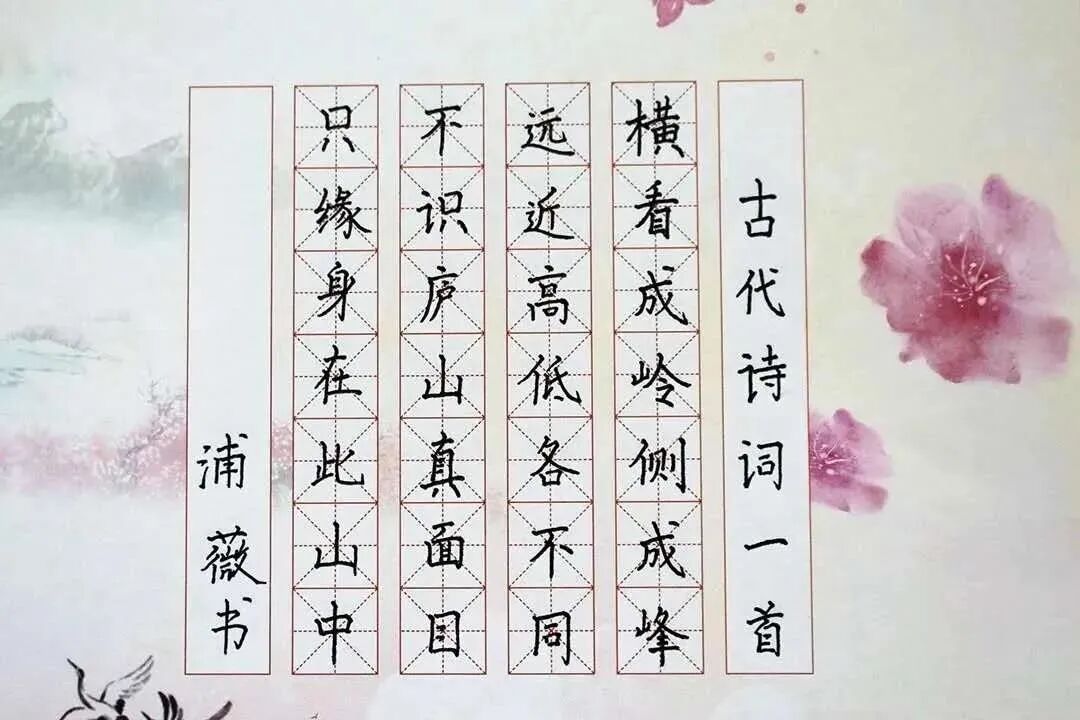 古代诗词一首
横看成岭侧成峰
远近高低各不同
不识庐山真面目
只缘身在此山中
浦薇书